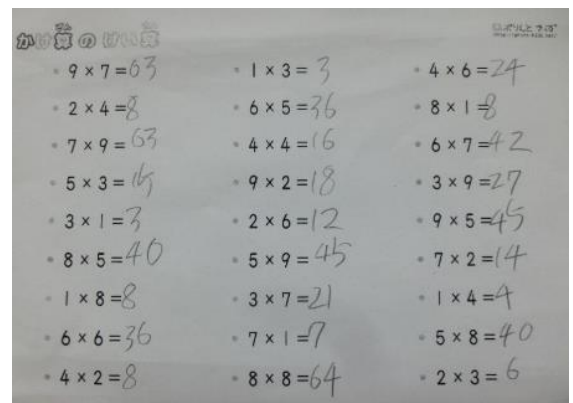 かけ算のけい算
9 × 7 = 63
2 × 4 = 8
7 × 9 = 63
5 × 3 = 15
3 × 1 = 3
8 × 5 = 40
1 × 8 = 8
6 × 6 = 36
4 × 2 = 8
1 × 3 = 3
6 × 5 = 36
4 × 4 = 16
9 × 2 = 18
2 × 6 = 12
5 × 9 = 45
3 × 7 = 21
7 × 1 = 7
8 × 8 = 64
4 × 6 = 24
8 × 1 = 8
6 × 7 = 42
3 × 9 = 27
9 × 5 = 45
7 × 2 = 14
1 × 4 = 4
5 × 8 = 40
2 × 3 = 6